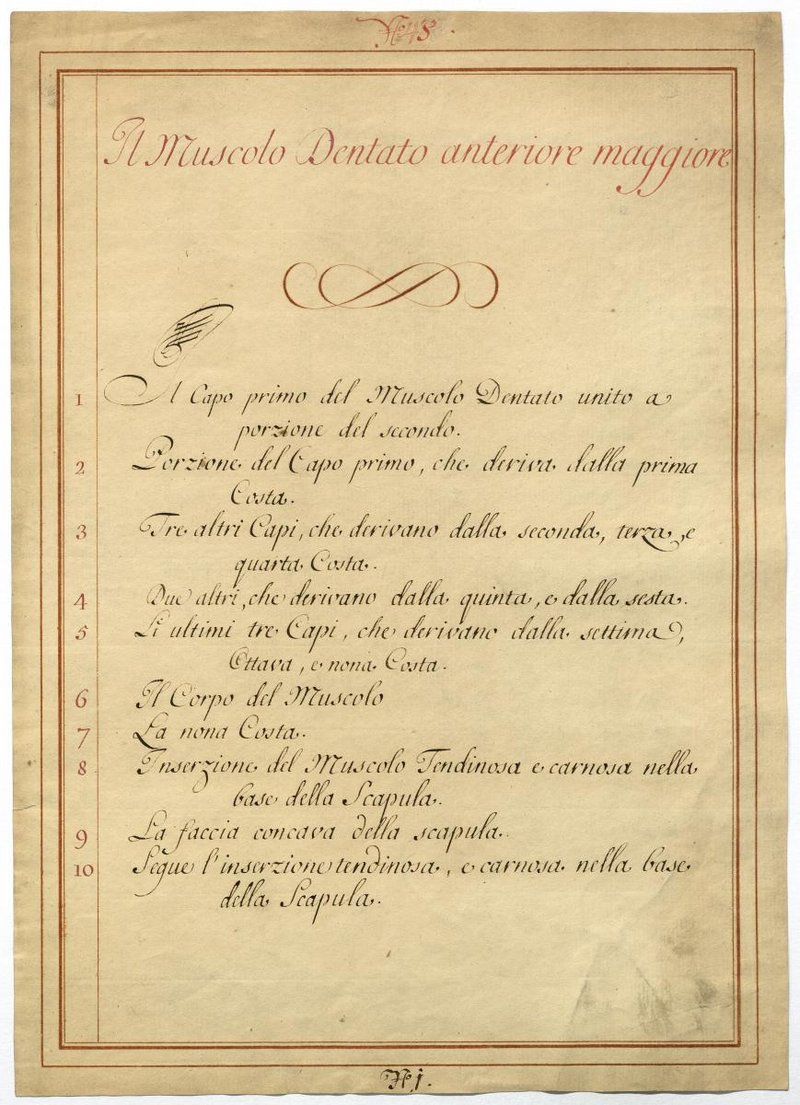 Il Muscolo Dentato anteriore maggiore
1 Il Capo primo del Muscolo Dentato unito a
porzione del secondo.
2 Porzione del Capo primo, che deriva dalla prima
Costa.
3 Tre altri Capi, che derivano dalla seconda, terza, e
quarta Costa.
4 Due altri, che derivano dalla quinta, e dalla sesta.
5 Li ultimi tre Capi, che derivano dalla settima,
Ottava, e nona Costa.
6 Il Corpo del Muscolo
7 La nona Costa.
8 Inserzione del Muscolo Tendinosa e carnosa nella
base della Scapula.
9 La faccia concava della scapula.
10 Segue l'inserzione tendinosa, e carnosa nella base
della Scapula.
N. 1.